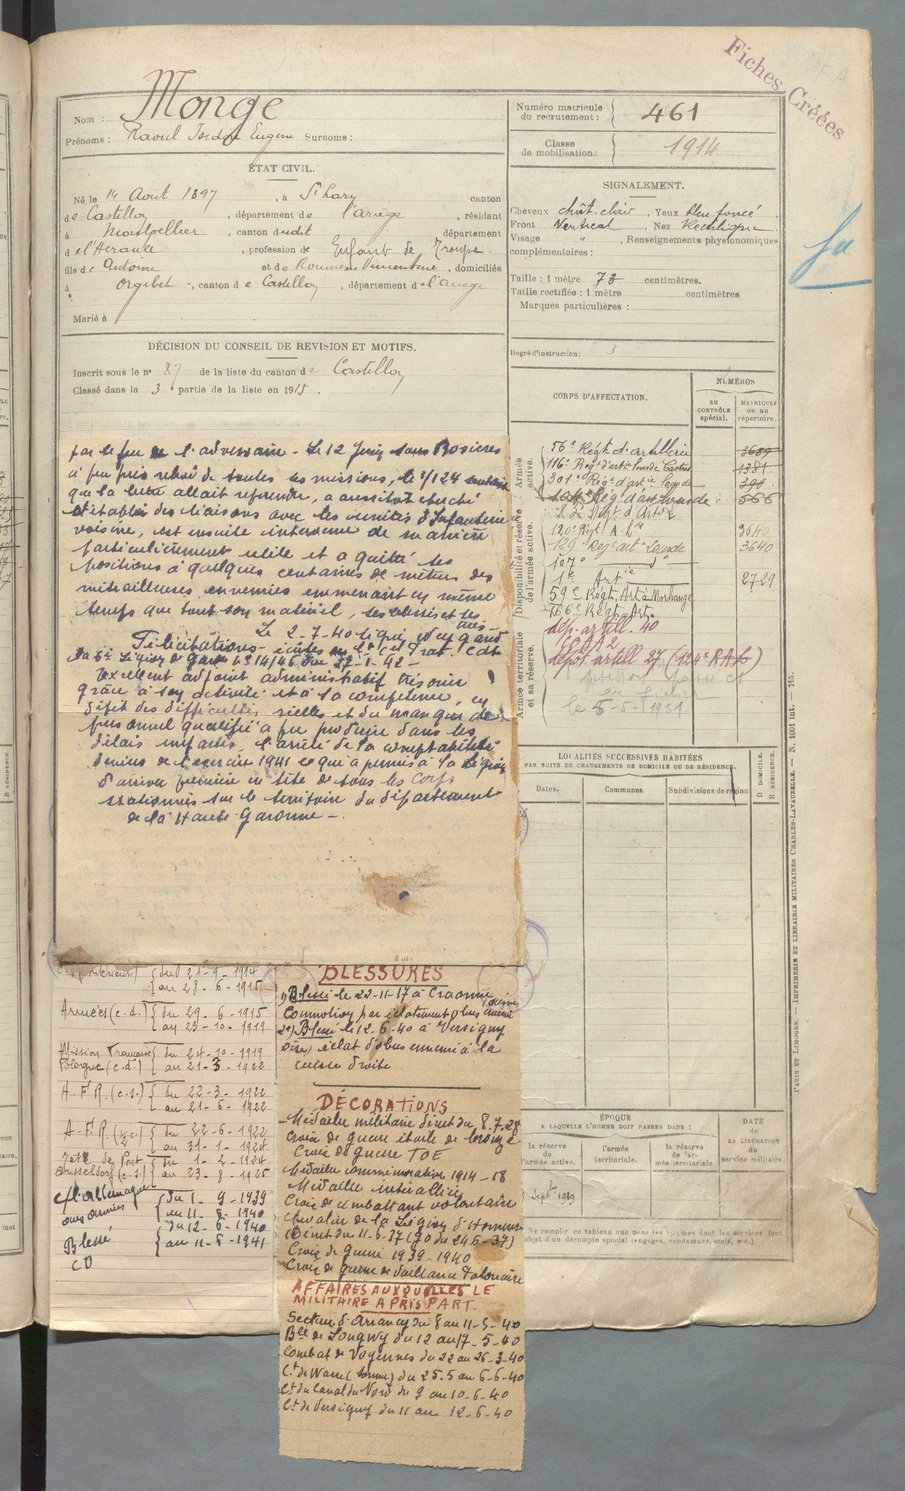 Fiches Créées
Nom : Monge
Prénoms : Raoul Isidore Eugène Surnoms :
Numéro matricule du recrutement : 461
Classe de mobilisation : 1914
ÉTAT CIVIL.
Né le 14 Août 1897, à St Lary canton
de Castillon, département de l'Ariège, résidant
à Montpellier, canton dudit département
de l'Hérault, profession de Enfant de Troupe
fils de Antoine et de domiciliés
à Orgibet, canton de Castillon, département de l'Ariège
Marié à
SIGNALEMENT.
Cheveux chât. clair, Yeux bleu foncé
Front Vertical, Nez Rectiligne
Visage ", Renseignements physionomiques
complémentaires :
Taille : 1 mètre 73 centimètres.
Taille rectifiée : 1 mètre centimètres
Marques particulières :
Degré d'instruction : 3
DÉCISION DU CONSEIL DE REVISION ET MOTIFS.
Inscrit sous le n° 87 de la liste du canton de Castillon
Classé dans la 3 partie de la liste en 1915.
par le feu de l'adversaire - Le 12 Juin
à peu près relevé de toutes ses missions, le 1/124
que la lutte allait reprendre, a aussitôt cherché
et établi des liaisons avec les unités d'Infanterie
voisine, est ensuite intervenu de manière
particulièrement utile et a quitté ses
positions à quelques centaines de mètres des
mitrailleuses ennemies emmenant en même
temps que tout son matériel, ses blessés et ses
Le 2-7-40 signé Weygand
Félicitations écrites
Excellent adjoint administratif
grâce à son activité et à sa compétence, en
dépit des difficultés réelles et du manque de
personnel qualifié a pu produire dans les
délais impartis, l'arrêté de la comptabilité
deniers de l'exercice 1941 ce qui a permis à la Légion
d'arriver première en tête de tous les Corps
stationnés sur le territoire du département
de la Haute Garonne -.
CORPS D'AFFECTATION.
NUMÉROS
AU CONTRÔLE spécial.
MATRICULE OU AU répertoire.
Armée active.
Disponibilité et réserve de l'armée active.
Armée territoriale et sa réserve.
56e Régt d'artillerie 3689
116e Régt d'artie lourde 1381
301e Régt d'artie lourde 399
Régt d'art lourde 666
120e Régt A. Lde 3640
129e Régt art Lourde 3640
107e do
1er Artie 2729
59e Régt Art à Morhange
166e Régt Art.
dép. artill. 40
dépôt artill 27 (124e R.A.L)
le 5-5-1951
LOCALITÉS SUCCESSIVES HABITÉES
PAR SUITE DE CHANGEMENTS DE DOMICILE OU DE RÉSIDENCE.
Dates.
Communes.
Subdivisions de région
D. DOMICILE.
R. RÉSIDENCE.
du 21-9-1914
au 28-6-1915
Armées (c.d.) du 29-6-1915
au 23-10-1919
Mission Française Pologne (c.d.) du 24-10-1919
au 21-3-1922
A.F.R. (c.s.) du 22-3-1922
au 21-6-1922
A.F.R. du 22-6-1922
au 31-1-1924
Dusseldorf (c.s) du 1-2-1924
au 23-8-1925
c/ l'Allemagne aux armées du 1-9-1939
au 11-6-1940
Blessé CD du 12-6-1940
au 11-6-1941
BLESSURES
1) Blessé le 22-11-17 à Craonne
Commotion par éclatement obus
2e) Blessé le 12-6-40 à Versigny
(Oise) éclat d'obus ennemi à la
cuisse droite
DÉCORATIONS
Médaille militaire décret du 8.7.28
Croix de guerre étoile de bronze
Croix de guerre TOE
Médaille commémorative 1914-18
Médaille interalliée
Croix de combattant volontaire
Chevalier de la Légion d'Honneur
(Décret du 11-6-37 JO du 24-6-37)
Croix de Guerre 1939-1940
Croix de guerre de Vaillance Polonaise
AFFAIRES AUXQUELLES LE
MILITAIRE A PRIS PART.
Secteur d'Arrancy du 8 au 11-5-40
Blle de Longwy du 12 au 17-5-40
Combat de Voyennes du 22 au 26-3-40
Ct de Warre (Somme) du 25.5 au 6-6-40
Ct du Canal du Nord du 9 au 10-6-40
Ct de Versigny du 11 au 12-6-40
ÉPOQUE
A LAQUELLE L'HOMME DOIT PASSER DANS :
la réserve de l'armée active.
l'armée territoriale.
la réserve de l'armée territoriale.
DATE de LA LIBÉRATION du service militaire.
PARIS ET LIMOGES. — IMPRIMERIE ET LIBRAIRIE MILITAIRES CHARLES-LAVAUZELLE.